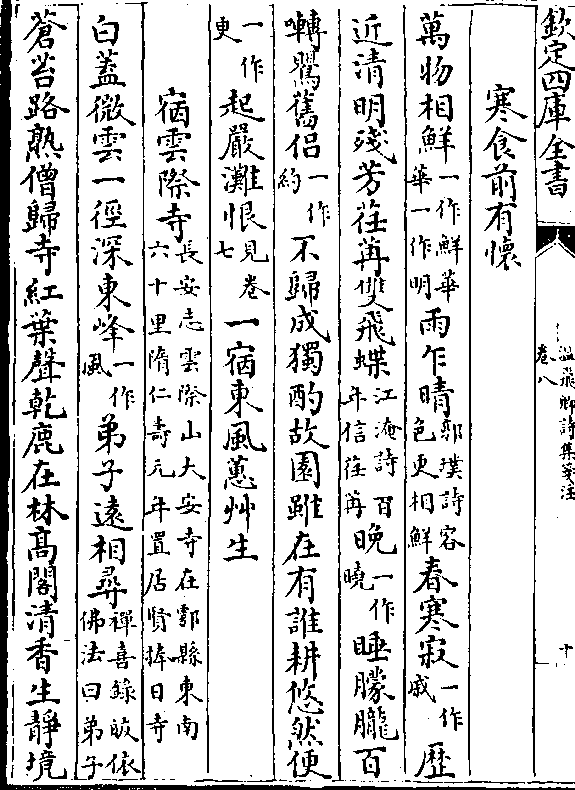 欽定四庫全書
溫飛卿詩集箋注
卷八
十
寒食前有懷
萬物相鮮一作鮮華一作明華雨乍晴郭璞詩容色更相鮮春寒寂一作戚歷
近清明殘芳荏苒雙飛蝶江淹詩百年信荏苒晚一作曉睡朦朧百
囀鶯舊侶一作約不歸成獨酌故園雖在有誰耕悠然便
一作更起嚴灘恨見卷七一宿東風蕙艸生
宿雲際寺長安志雲際山大安寺在鄠縣東南六十里隋仁壽元年置居賢捧日寺
白蓋微雲一徑深東峰一作風弟子遠相尋禪喜錄皈依佛法曰弟子
蒼苔路熟僧歸寺紅葉聲乾鹿在林高閣清香生靜境